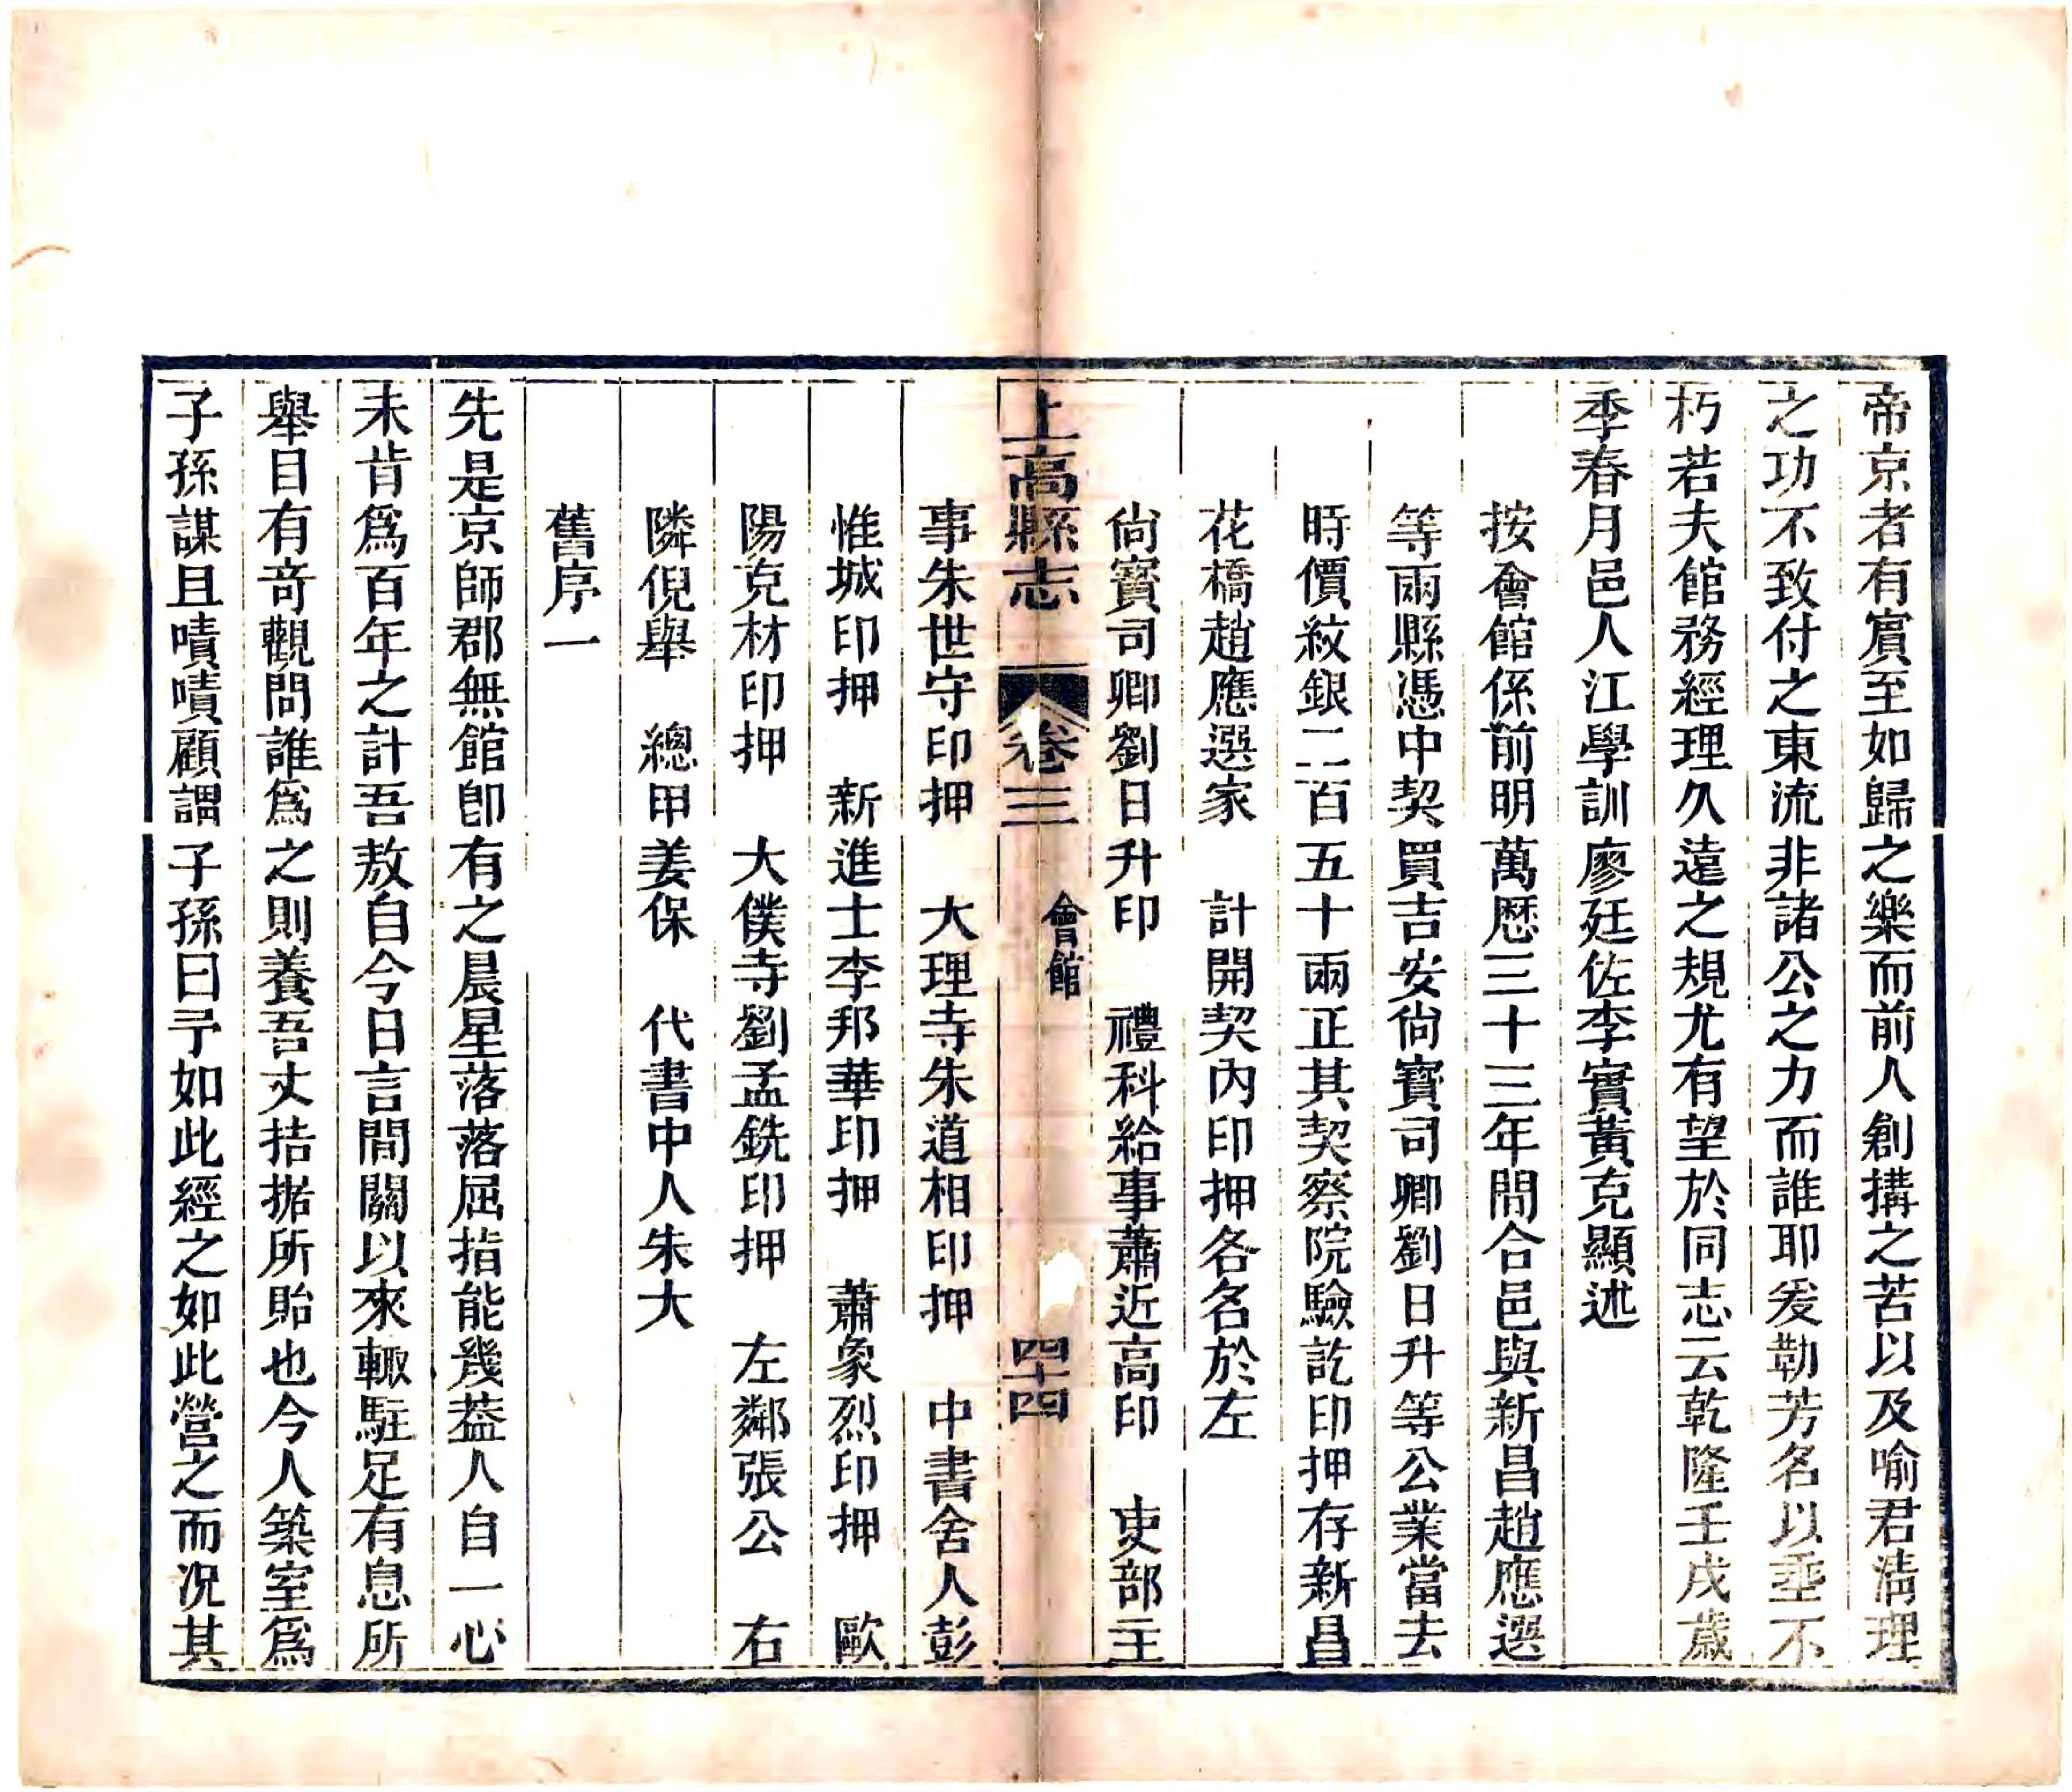 帝京者有賔至如歸之樂而前人創搆之苦以及喻君淸理
之功不致付之東流非諸公之力而誰耶爰勒芳名以埀不
朽若夫館務經理久遠之規尤有望於同志云乾隆壬戌歲
季春月邑人江學訓廖廷佐李實黃克顯述
按會館係前明萬厯三十三年間合邑與新昌趙應選
等兩縣憑中契買吉安尙寶司卿劉日升等公業當去
時價紋銀二百五十兩正其契察院驗訖印押存新昌
花橋趙應選家　計開契內印押各名於左
尙寶司卿劉日升印　禮科給事蕭近高印　吏部主
上高縣志　卷三　會館　四十四
事朱世守印押　大理寺朱道相印押　中書舍人彭
惟城印押　新進士李邦華印押　蕭象烈印押　歐
陽克材印押　大僕寺劉孟銑印押　左鄰張公　右
隣倪舉　總甲姜保　代書中人朱大
舊序一
先是京師郡無館卽有之晨星落落屈指能幾葢人自一心
未肯爲百年之計吾敖自今日言間關以來輙駐足有息所
舉目有奇觀問誰爲之則養吾丈拮据所貽也今人築室爲
子孫謀且嘖嘖顧謂子孫曰予如此經之如此營之而况其